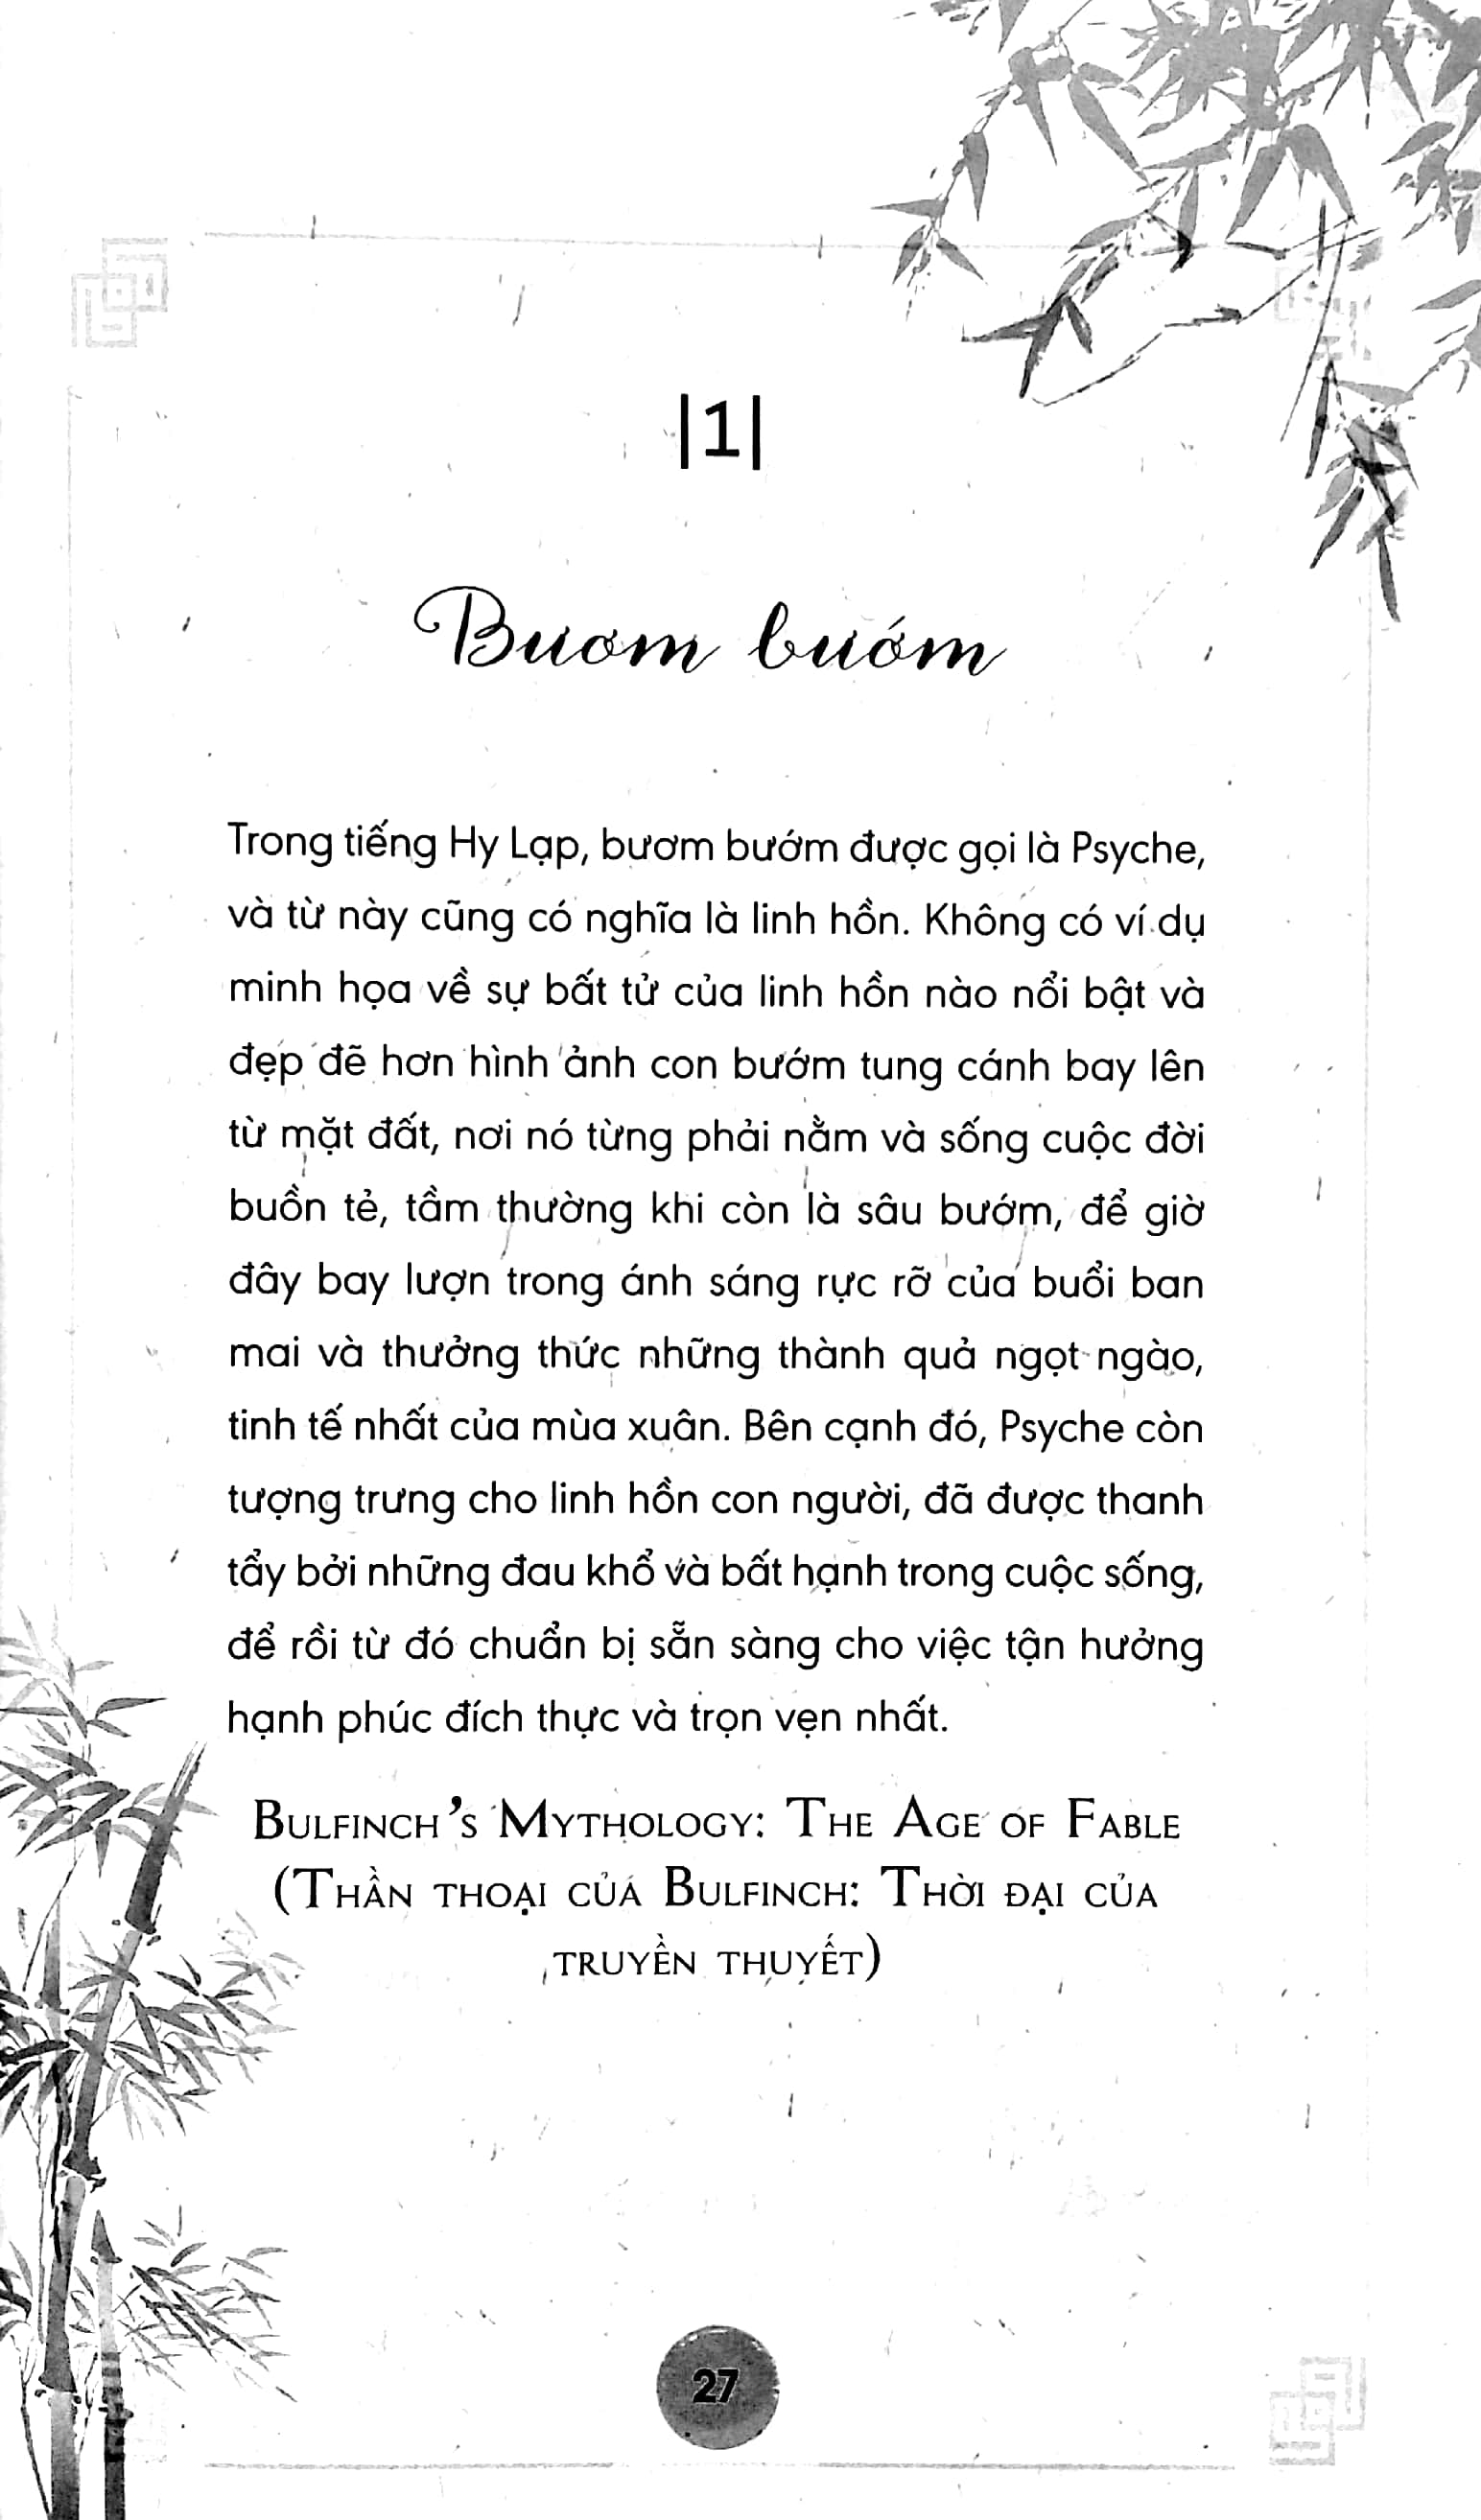 |1|
Bươm bướm
Trong tiếng Hy Lạp, bươm bướm được gọi là Psyche,
và từ này cũng có nghĩa là linh hồn. Không có ví dụ
minh họa về sự bất tử của linh hồn nào nổi bật và
đẹp đẽ hơn hình ảnh con bướm tung cánh bay lên
từ mặt đất, nơi nó từng phải nằm và sống cuộc đời
buồn tẻ, tầm thường khi còn là sâu bướm, để giờ
đây bay lượn trong ánh sáng rực rỡ của buổi ban
mai và thưởng thức những thành quả ngọt ngào,
tinh tế nhất của mùa xuân. Bên cạnh đó, Psyche còn
tượng trưng cho linh hồn con người, đã được thanh
tẩy bởi những đau khổ và bất hạnh trong cuộc sống,
để rồi từ đó chuẩn bị sẵn sàng cho việc tận hưởng
hạnh phúc đích thực và trọn vẹn nhất.
BULFINCH'S MYTHOLOGY: THE AGE OF FABLE
(THẦN THOẠI CỦA BULFINCH: THỜI ĐẠI CỦA
TRUYỀN THUYẾT)
27